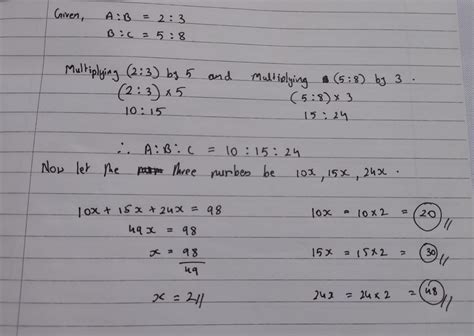 Given, A:B = 2:3
B:C = 5:8
Multiplying (2:3) by 5 and Multiplying (5:8) by 3.
(2:3) x 5 (5:8) x 3
10:15 15:24
∴ A:B:C = 10:15:24
Now let the three number be 10x, 15x, 24x.
10x + 15x + 24x = 98 10x = 10x2 = 20 //
49x = 98 15x = 15x2 = 30 //
x = 98
49
x = 2 // 24x = 24x2 = 48 //